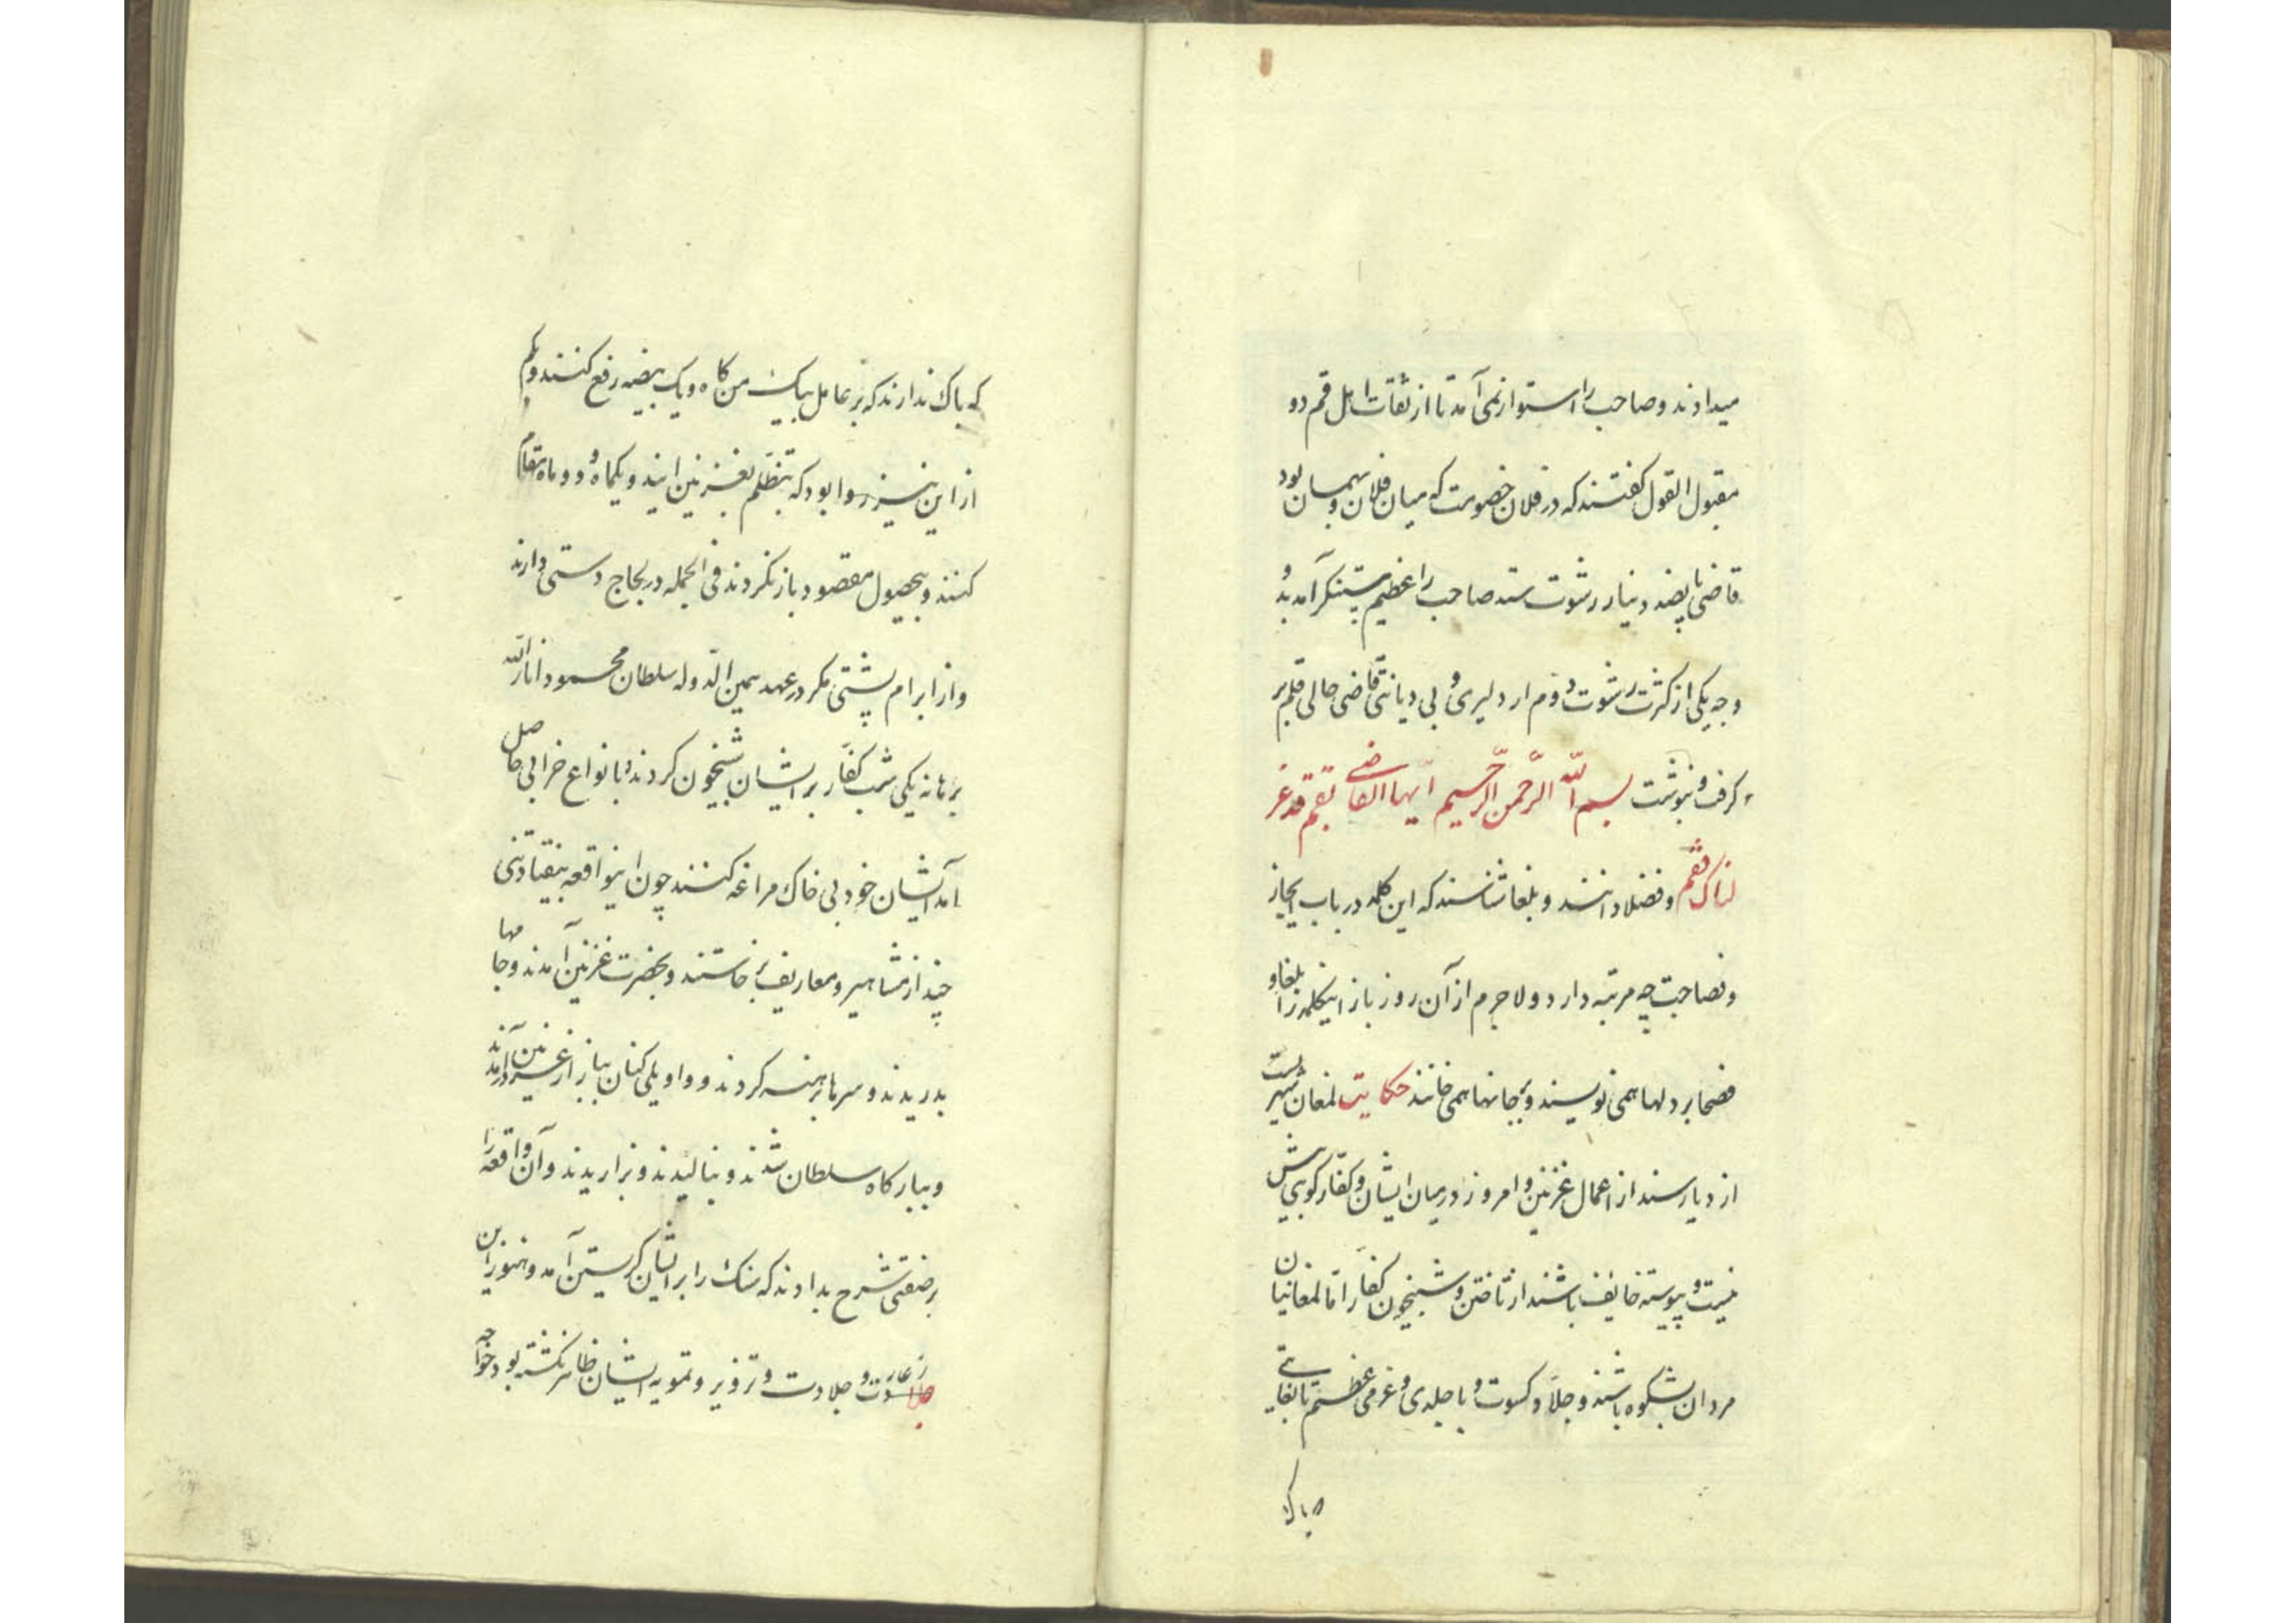 میدادند و صاحب را استوار نمی آمد تا از ثقات اهل قم دو
مقبول القول گفتند که در فلان خصومت که میان فلان و بهمان بود
قاضی پانصد دینار رشوت ستد صاحب را عظیم مستنکر آمد بدو
وجه یکی از کثرت رشوت و دوم از دلیری و بی دیانتی قاضی حالی قلم بر
گرفت و بنوشت بسم الله الرحمن الرحیم ایها القاضی بقم قد عز
لناک فقم و فضلا دانند و بلغا شناسند که این کلمه در باب ایجاز
و فصاحت چه مرتبه دارد و لاجرم از آن روز باز اینکلمه را بلغا و
فصحا بر دلها همی نویسند و بر جانها همی خانند حکایت لمغان شهریست
از دیار سند از اعمال غزنین و امروز در میان ایشان و کفار کوهی بیش
نیست و پیوسته خایف باشند از تاختن و شبیخون کفار اما لمغانیان
مردان بشکوه باشند و جلد و کسوت و با جلدی و عرمی عظیم تا بغایتی
که باک
که باک ندارند که بر عامل بیک من کاه و یک بیضه رفع کنند و بکم
از این نیز روا بود که بتظلم بغزنین آیند و یکماه و دو ماه مقام
کنند و بیحصول مقصود باز نگردند فی الجمله در لجاج دستی دارند
و از ابرام پشتی مگر در عهد یمین الدوله سلطان محمود انار الله
برهانه یکی شب کفار بر ایشان شبیخون کردند و بانواع خرابی حاصل
آمد ایشان خود بی خاک مراغه کنند چون اینواقعه بیفتاد تنی
چند از مشاهیر و معاریف برخاستند و بحضرت غزنین آمدند و جامها
بدریدند و سرها برهنه کردند و واویلی کنان ببازار غزنین در آمدند
و ببارگاه سلطان شدند و بنالیدند و بزاریدند و آن واقعه را
بر صفتی شرح بدادند که سنگ را بر ایشان گریستن آمد و هنوز این
زعارت و جلادت و تزویر و تمویه ایشان ظاهر نگشته بود خواجه